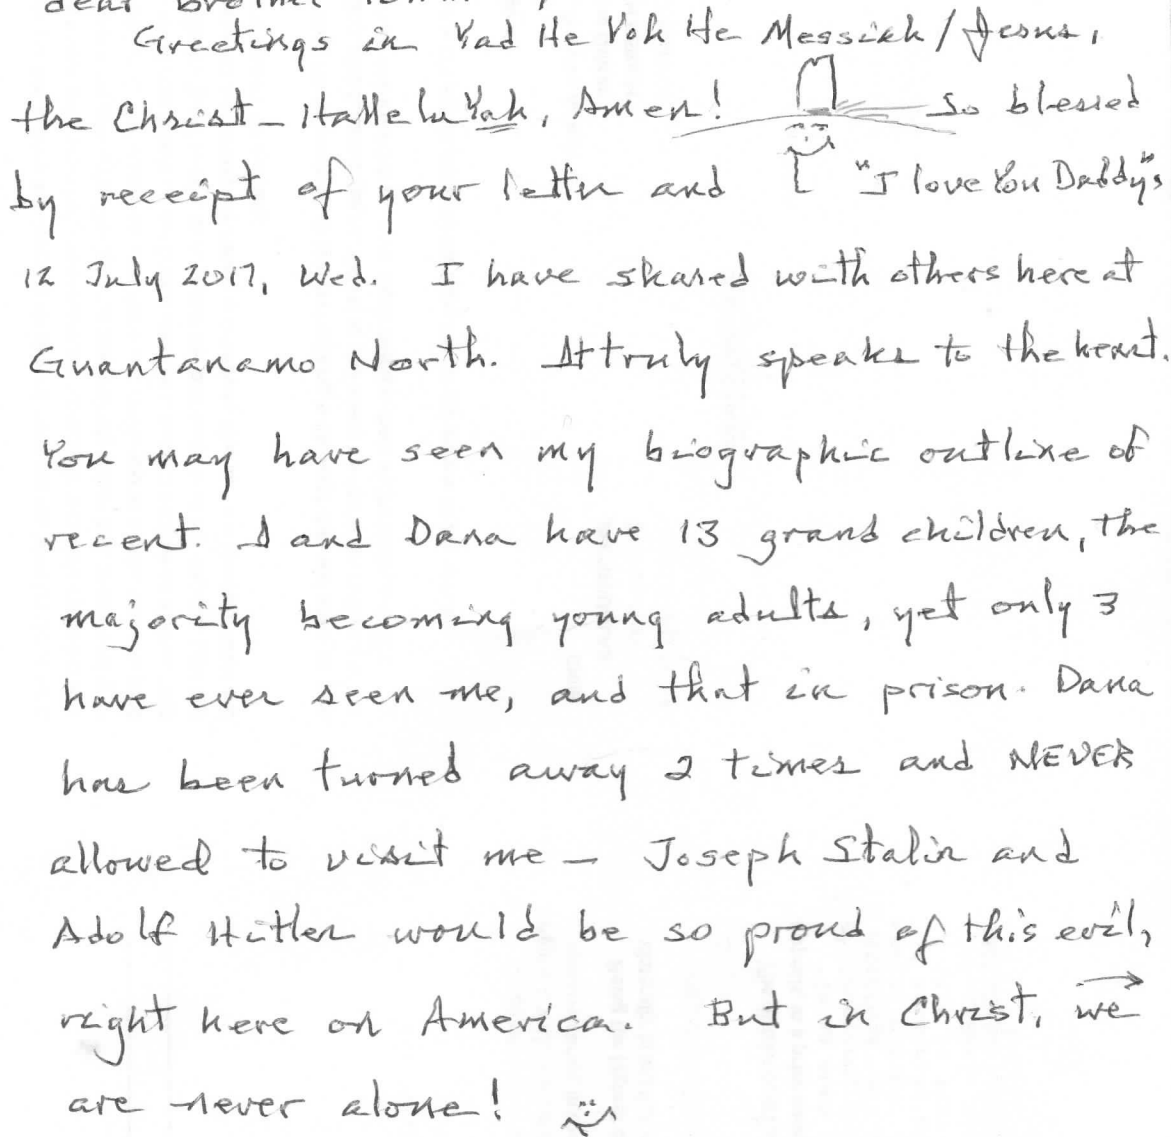 dear Brother
Greetings in Yad He Voh He Messiah/Jesus,
the Christ - HalleluYah, Amen! So blessed
by receipt of your letter and "I love You Daddy"s
12 July 2017, Wed. I have shared with others here at
Guantanamo North. It truly speaks to the heart.
You may have seen my biographic outline of
recent. I and Dana have 13 grand children, the
majority becoming young adults, yet only 3
have ever seen me, and that in prison. Dana
has been turned away 2 times and NEVER
allowed to visit me - Joseph Stalin and
Adolf Hitler would be so proud of this evil,
right here on America. But in Christ, we
are never alone!